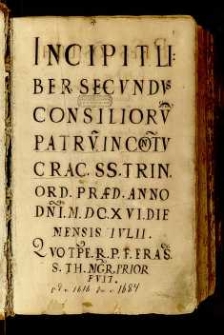 INCIPIT LI:
BER SECVNDVS
CONSILIORV̄
PATRV̄. IN CONTV
CRAC. SS. TRIN.
ORD. PRÆD. ANNO
DN̄I. M. DC. XVI. DIE
MENSIS IVLII.
QVO TP̄E. R. P. F. ERAS.
S. TH. MGR. PRIOR
FVIT.
1616 1684